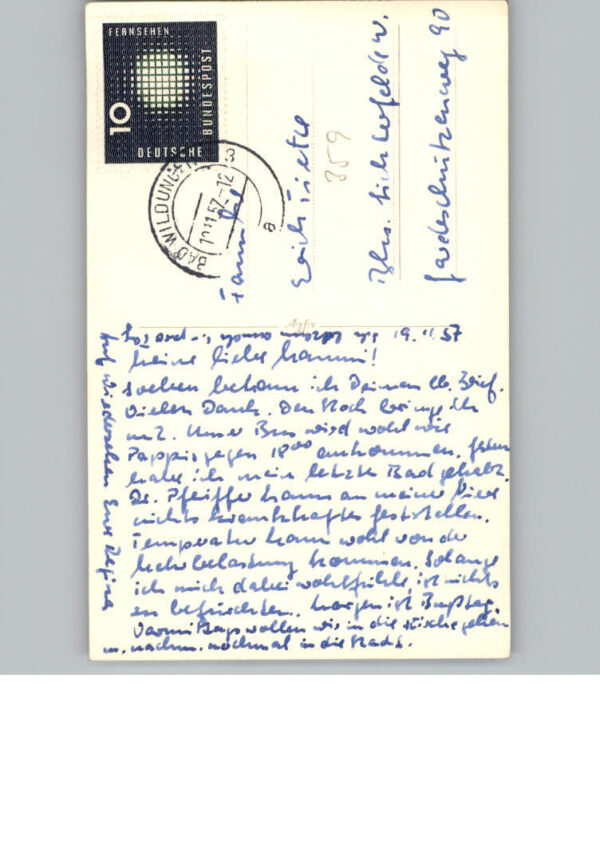 FERNSEHEN
10
BUNDESPOST
DEUTSCHE
BAD WILDUNGEN
19.11.57-12
a
Familie
Erich Tietze
359
Bln. Lichterfelde W.
Gardeschützenweg 90
19.11.57
Meine liebe Mammi!
Soeben bekam ich Deinen lb. Brief.
Vielen Dank. Den Rock bringe ich
mit. Unser Bus wird wohl wie
Pappis gegen 18⁰⁰ ankommen.
habe ich mein letztes Bad gehabt.
Dr. Pfeiffer kann an meiner
nichts krankhaftes feststellen.
Temperatur kann wohl von der
kommen. Solange
ich mich dabei wohlfühle, ist nichts
zu befürchten. Morgen ist Bußtag.
Vormittags wollen wir in die Kirche gehen
u. nachm. nochmal in die Stadt.
Auf Wiedersehen Eure Regina